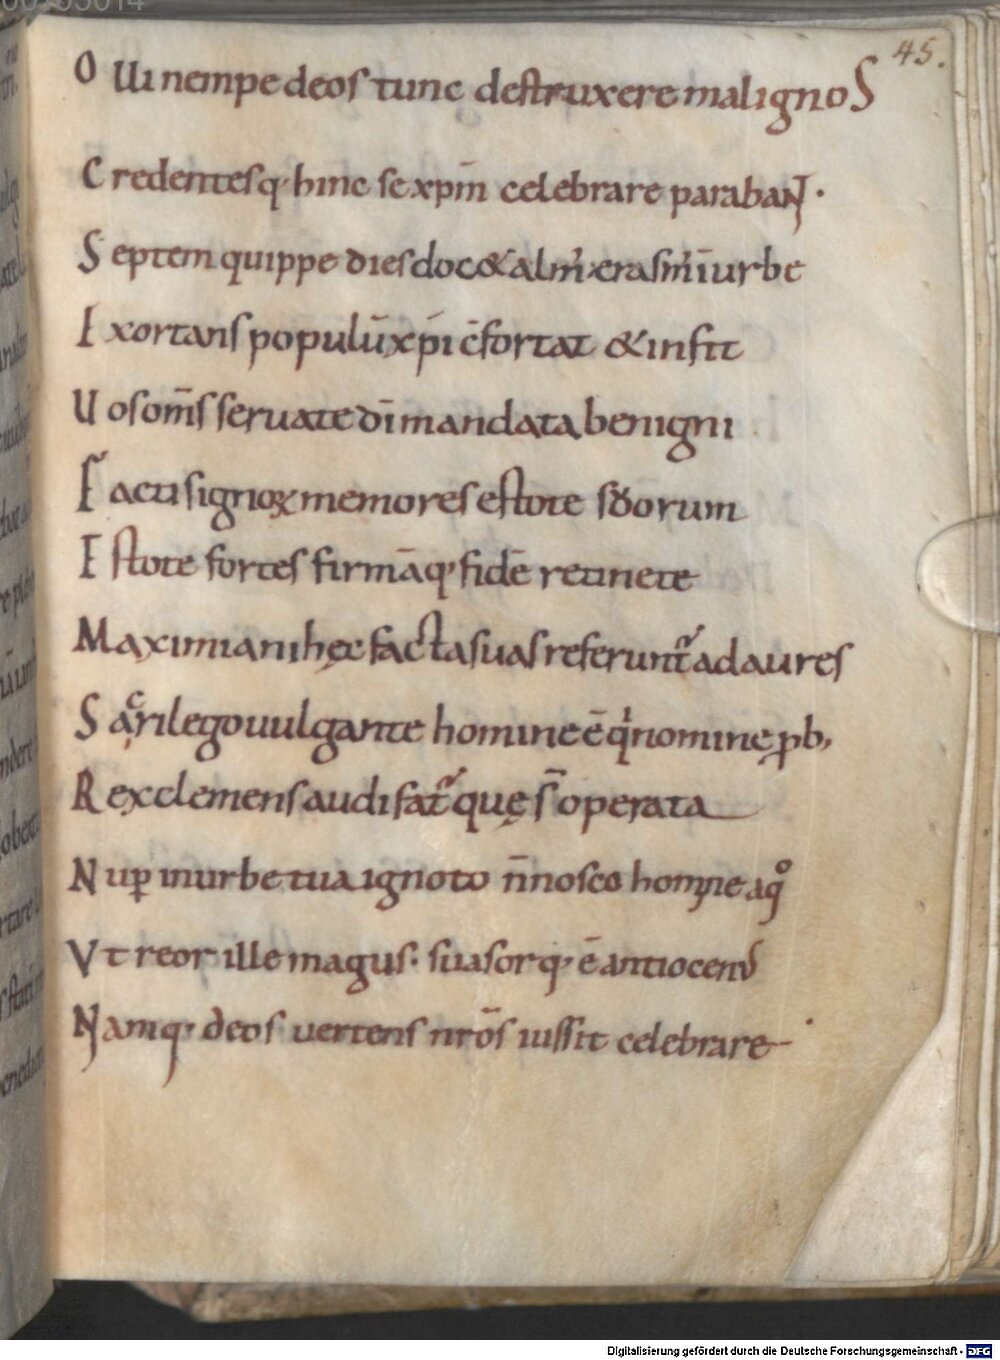 45.
O llı nempe deos tunc destruxere malignoS
C redentesq· hinc se xp̄m celebrare parabaNT·
S eptem quippe dies doc& alm᷒ erasm᷒ ī urbe
E xortans populū xp̄i c̄fortat & infit
U os om̄s servate dī mandata benigni
F acti signoꝝ memores estote sc̄dorum
E stote fortes firmāq· fidē retinete
M aximiani hęc facta suas referunt᷒ ad aures
S acrilego vulgante homine ē qͥ nomine ꝓb,
R ex clemens audi fat᷒ quę s̄ operata
N uꝑ in urbe tua ignoto n̄ nosco homine a qͦ
V t reor ille magus· suasorq· ē antiocenus
N amq· deos vertens nr̄os iussit celebrare
Digitalisierung gefördert durch die Deutsche Forschungsgemeinschaft - DFG